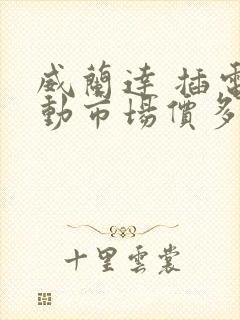 威蘭達 插電
動市場價多
十里雲裳